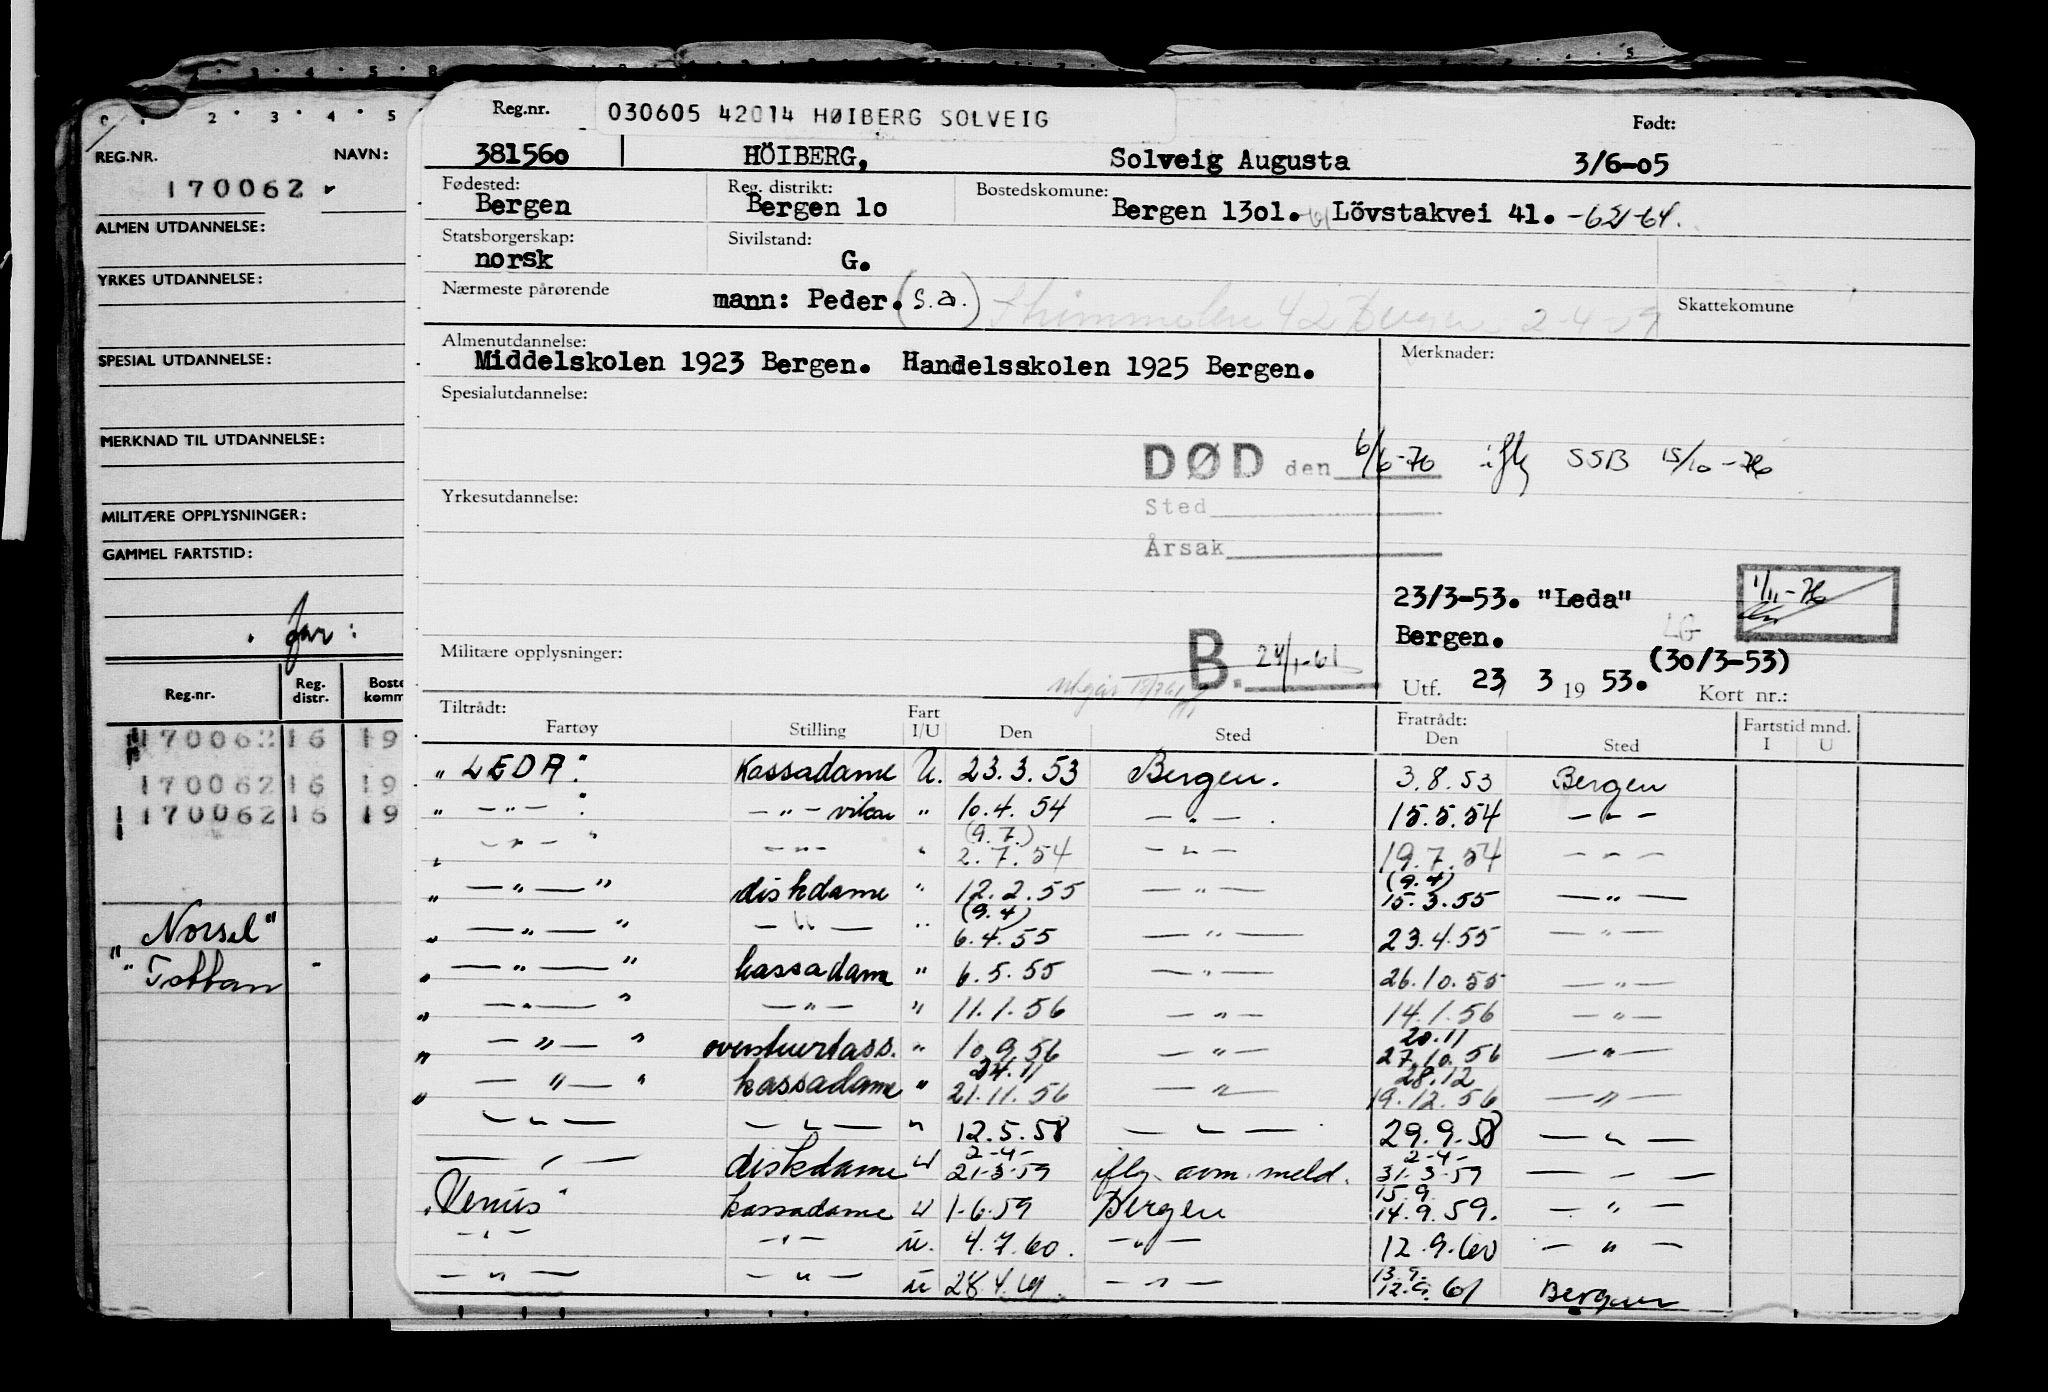 REG.NR. NAVN:
170062
ALMEN UTDANNELSE:
YRKES UTDANNELSE:
SPESIAL UTDANNELSE:
MERKNAD TIL UTDANNELSE:
MILITÆRE OPPLYSNINGER:
GAMMEL FARTSTID:
far:
Reg.nr. Reg. distr. Boste komm
170062 16 19
170062 16 19
170062 16 19
"Norsel"
"Tottan
Reg.nr. 030605 42014 HØIBERG SOLVEIG Født:
381560 HÖIBERG, Solveig Augusta 3/6-05
Fødested: Reg. distrikt: Bostedskomune:
Bergen Bergen 10 Bergen 1301. Lövstakvei 41. -62-64.
Statsborgerskap: Sivilstand:
norsk G.
Nærmeste pårørende mann: Peder. (s.a.) 42 Bergen 2-4-59 Skattekomune
Almenutdannelse: Merknader:
Middelskolen 1923 Bergen. Handelsskolen 1925 Bergen.
Spesialutdannelse:
DØD den 6/6-76 iflg SSB 15/10-76
Yrkesutdannelse: Sted
Årsak
23/3-53. "Leda" 1/11-76
Bergen. LG
Militære opplysninger: B. 24/1-61 (30/3-53)
Utf. 23 3 1953. Kort nr.:
Tiltrådt: Fratrådt: Fartstid mnd.
Fartøy Stilling Fart I/U Den Sted Den Sted I U
"LEDA" Kassadame U. 23.3.53 Bergen. 3.8.53 Bergen
" -"- " -"- vikar " 10.4.54 -"- 15.5.54 -"-
(9.7.)
" -"- " -"- " 2.7.54 -"- 19.7.54 -"-
" -"- " diskdame " 12.2.55 -"- (9.4) 15.3.55 -"-
(9.4)
" -"- " -"- " 6.4.55 -"- 23.4.55 -"-
" -"- " kassadame " 6.5.55 -"- 26.10.55 -"-
" -"- " -"- " 11.1.56 -"- 14.1.56 -"-
20.11
" -"- " overstuertass. " 10.9.56 -"- 27.10.56 -"-
24.11 28.12
" -"- " kassadame " 21.11.56 -"- 19.12.56 -"-
-"- -"- " 12.5.58 -"- 29.9.58 -"-
2-4- 2-4-
-"- diskdame U 21-3-59 iflg. avm. meld. 31-3-59 -"-
15.9.
"Venus" kassadame U 1-6-59 Bergen 14.9.59. -"-
-"- -"- U. 4.7.60. -"- 12.9.60 -"-
13.9.
-"- -"- U 28.4.61. -"- 12.9.61 Bergen